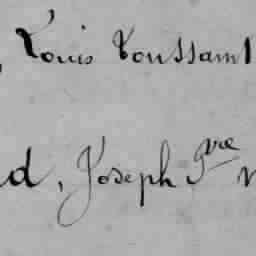 , Louis Toussaint
d, Joseph